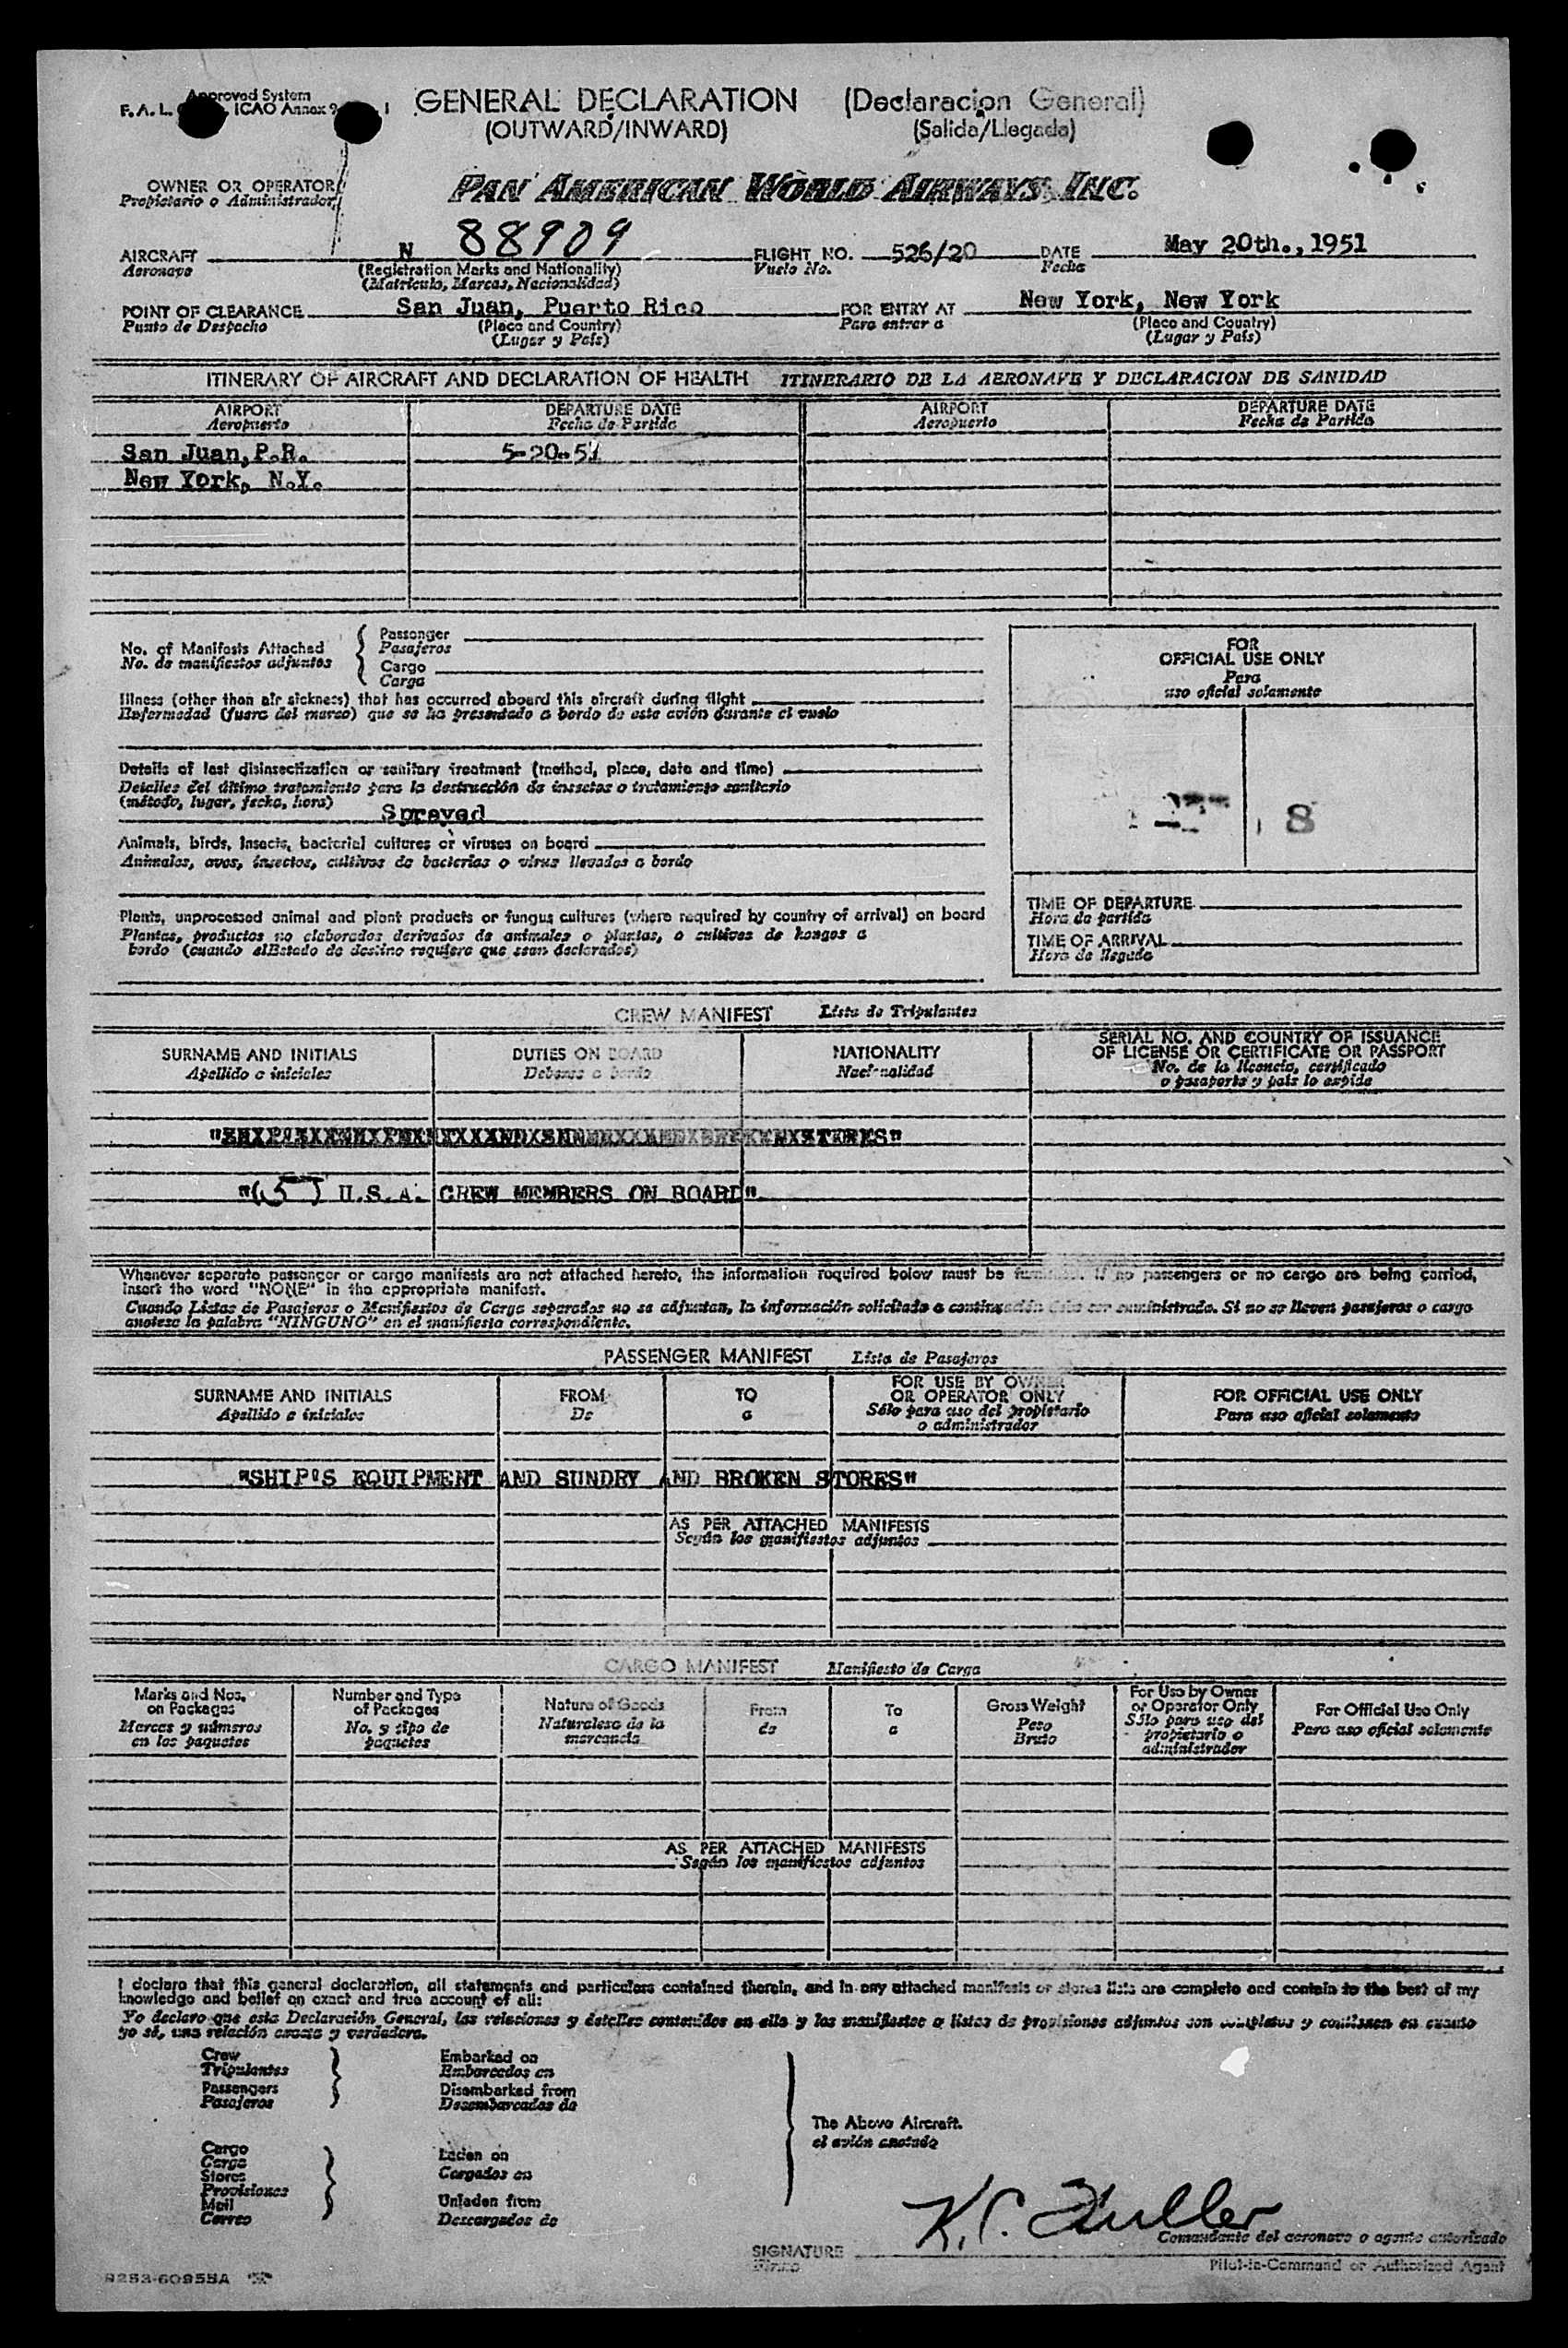 Approved System
F. A. L. ICAO Annex 9 1
GENERAL DECLARATION (Declaracion General)
(OUTWARD/INWARD) (Salida/Llegada)
OWNER OR OPERATOR
Propietario o Administrador
PAN AMERICAN WORLD AIRWAYS, INC.
AIRCRAFT N 88909 FLIGHT NO. 526/20 DATE May 20th., 1951
Aeronave (Registration Marks and Nationality) Vuelo No. Fecha
(Matricula, Marcas, Nacionalidad)
POINT OF CLEARANCE San Juan, Puerto Rico FOR ENTRY AT New York, New York
Punto de Despacho (Place and Country) Para entrar a (Place and Country)
(Lugar y País) (Lugar y País)
ITINERARY OF AIRCRAFT AND DECLARATION OF HEALTH ITINERARIO DE LA AERONAVE Y DECLARACION DE SANIDAD
AIRPORT DEPARTURE DATE AIRPORT DEPARTURE DATE
Aeropuerto Fecha de Partida Aeropuerto Fecha de Partida
San Juan, P.R. 5-20-51
New York, N.Y.
No. of Manifests Attached { Passenger
No. de manifiestos adjuntos Pasajeros
Cargo
Carga
Illness (other than air sickness) that has occurred aboard this aircraft during flight
Enfermedad (fuera del mareo) que se ha presentado a bordo de este avión durante el vuelo
Details of last disinsectization or sanitary treatment (method, place, date and time)
Detalles del último tratamiento para la destrucción de insectos o tratamiento sanitario
(método, lugar, fecha, hora)
Sprayed
Animals, birds, insects, bacterial cultures or viruses on board
Animales, aves, insectos, cultivos de bacterias o virus llevados a bordo
Plants, unprocessed animal and plant products or fungus cultures (where required by country of arrival) on board
Plantas, productos no elaborados derivados de animales o plantas, o cultivos de hongos a
bordo (cuando elEstado de destino requiera que sean declarados)
FOR
OFFICIAL USE ONLY
Para
uso oficial solamente
8
TIME OF DEPARTURE
Hora de partida
TIME OF ARRIVAL
Hora de llegada
CREW MANIFEST Lista de Tripulantes
SURNAME AND INITIALS DUTIES ON BOARD NATIONALITY SERIAL NO. AND COUNTRY OF ISSUANCE
OF LICENSE OR CERTIFICATE OR PASSPORT
Apellido o iniciales Deberes a bordo Nacionalidad No. de la licencia, certificado
o pasaporte y país lo expide
"(5) U.S.A. CREW MEMBERS ON BOARD"
Whenever separate passenger or cargo manifests are not attached hereto, the information required below must be If no passengers or no cargo are being carried,
insert the word "NONE" in the appropriate manifest.
Cuando Listas de Pasajeros o Manifiestos de Carga separados no se adjuntan, la información solicitada a continuación ser suministrada. Si no se lleven pasajeros o carga
anotese la palabra "NINGUNO" en el manifiesto correspondiente.
PASSENGER MANIFEST Lista de Pasajeros
SURNAME AND INITIALS FROM TO FOR USE BY OWNER
OR OPERATOR ONLY FOR OFFICIAL USE ONLY
Apellido e iniciales De a Sólo para uso del propietario
o administrador Para uso oficial solamente
"SHIP'S EQUIPMENT AND SUNDRY AND BROKEN STORES"
AS PER ATTACHED MANIFESTS
Según los manifiestos adjuntos
CARGO MANIFEST Manifiesto de Carga
Marks and Nos. on Packages Number and Type of Packages Nature of Goods From To Gross Weight For Use by Owner or Operator Only For Official Use Only
Marcas y números en los paquetes No. y tipo de paquetes Naturaleza de la mercancía de a Peso Bruto Sólo para uso del propietario o administrador Para uso oficial solamente
AS PER ATTACHED MANIFESTS
Según los manifiestos adjuntos
I declare that this general declaration, all statements and particulars contained therein, and in any attached manifests or stores lists are complete and contain to the best of my
knowledge and belief an exact and true account of all:
Yo declaro que esta Declaración General, las relaciones y detalles contenidos en ella y los manifiestos o listas de provisiones adjuntos son completos y contienen en cuanto
yo sé, una relación exacta y verdadera.
Crew Embarked on
Tripulantes Embarcados en
Passengers Disembarked from
Pasajeros Desembarcados de
The Above Aircraft.
el avión anotado
Cargo Laden on
Carga
Stores Cargados en
Provisiones
Mail Unladen from
Correo Descargados de
K.C. Fuller
Comandante del aeronave o agente autorizado
SIGNATURE
Firma Pilot-in-Command or Authorized Agent
9283-60955A